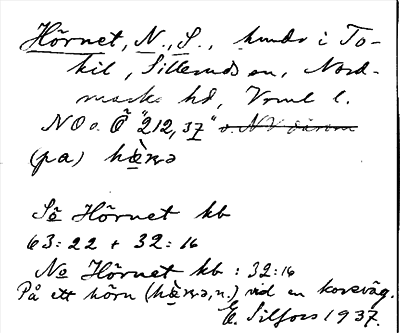 Hôrnet, N., S., hmdr i To-
kil, Sillerud sn, Nord-
marks hd, Vrml l.
NO o. Ö "212, 37" o. NV därom
(på)
Sö Hôrnet kb
63:22 + 32:16
No Hôrnet kb : 32:16
På ett hörn (n.) vid en korsväg.
E. Silfors 1937.